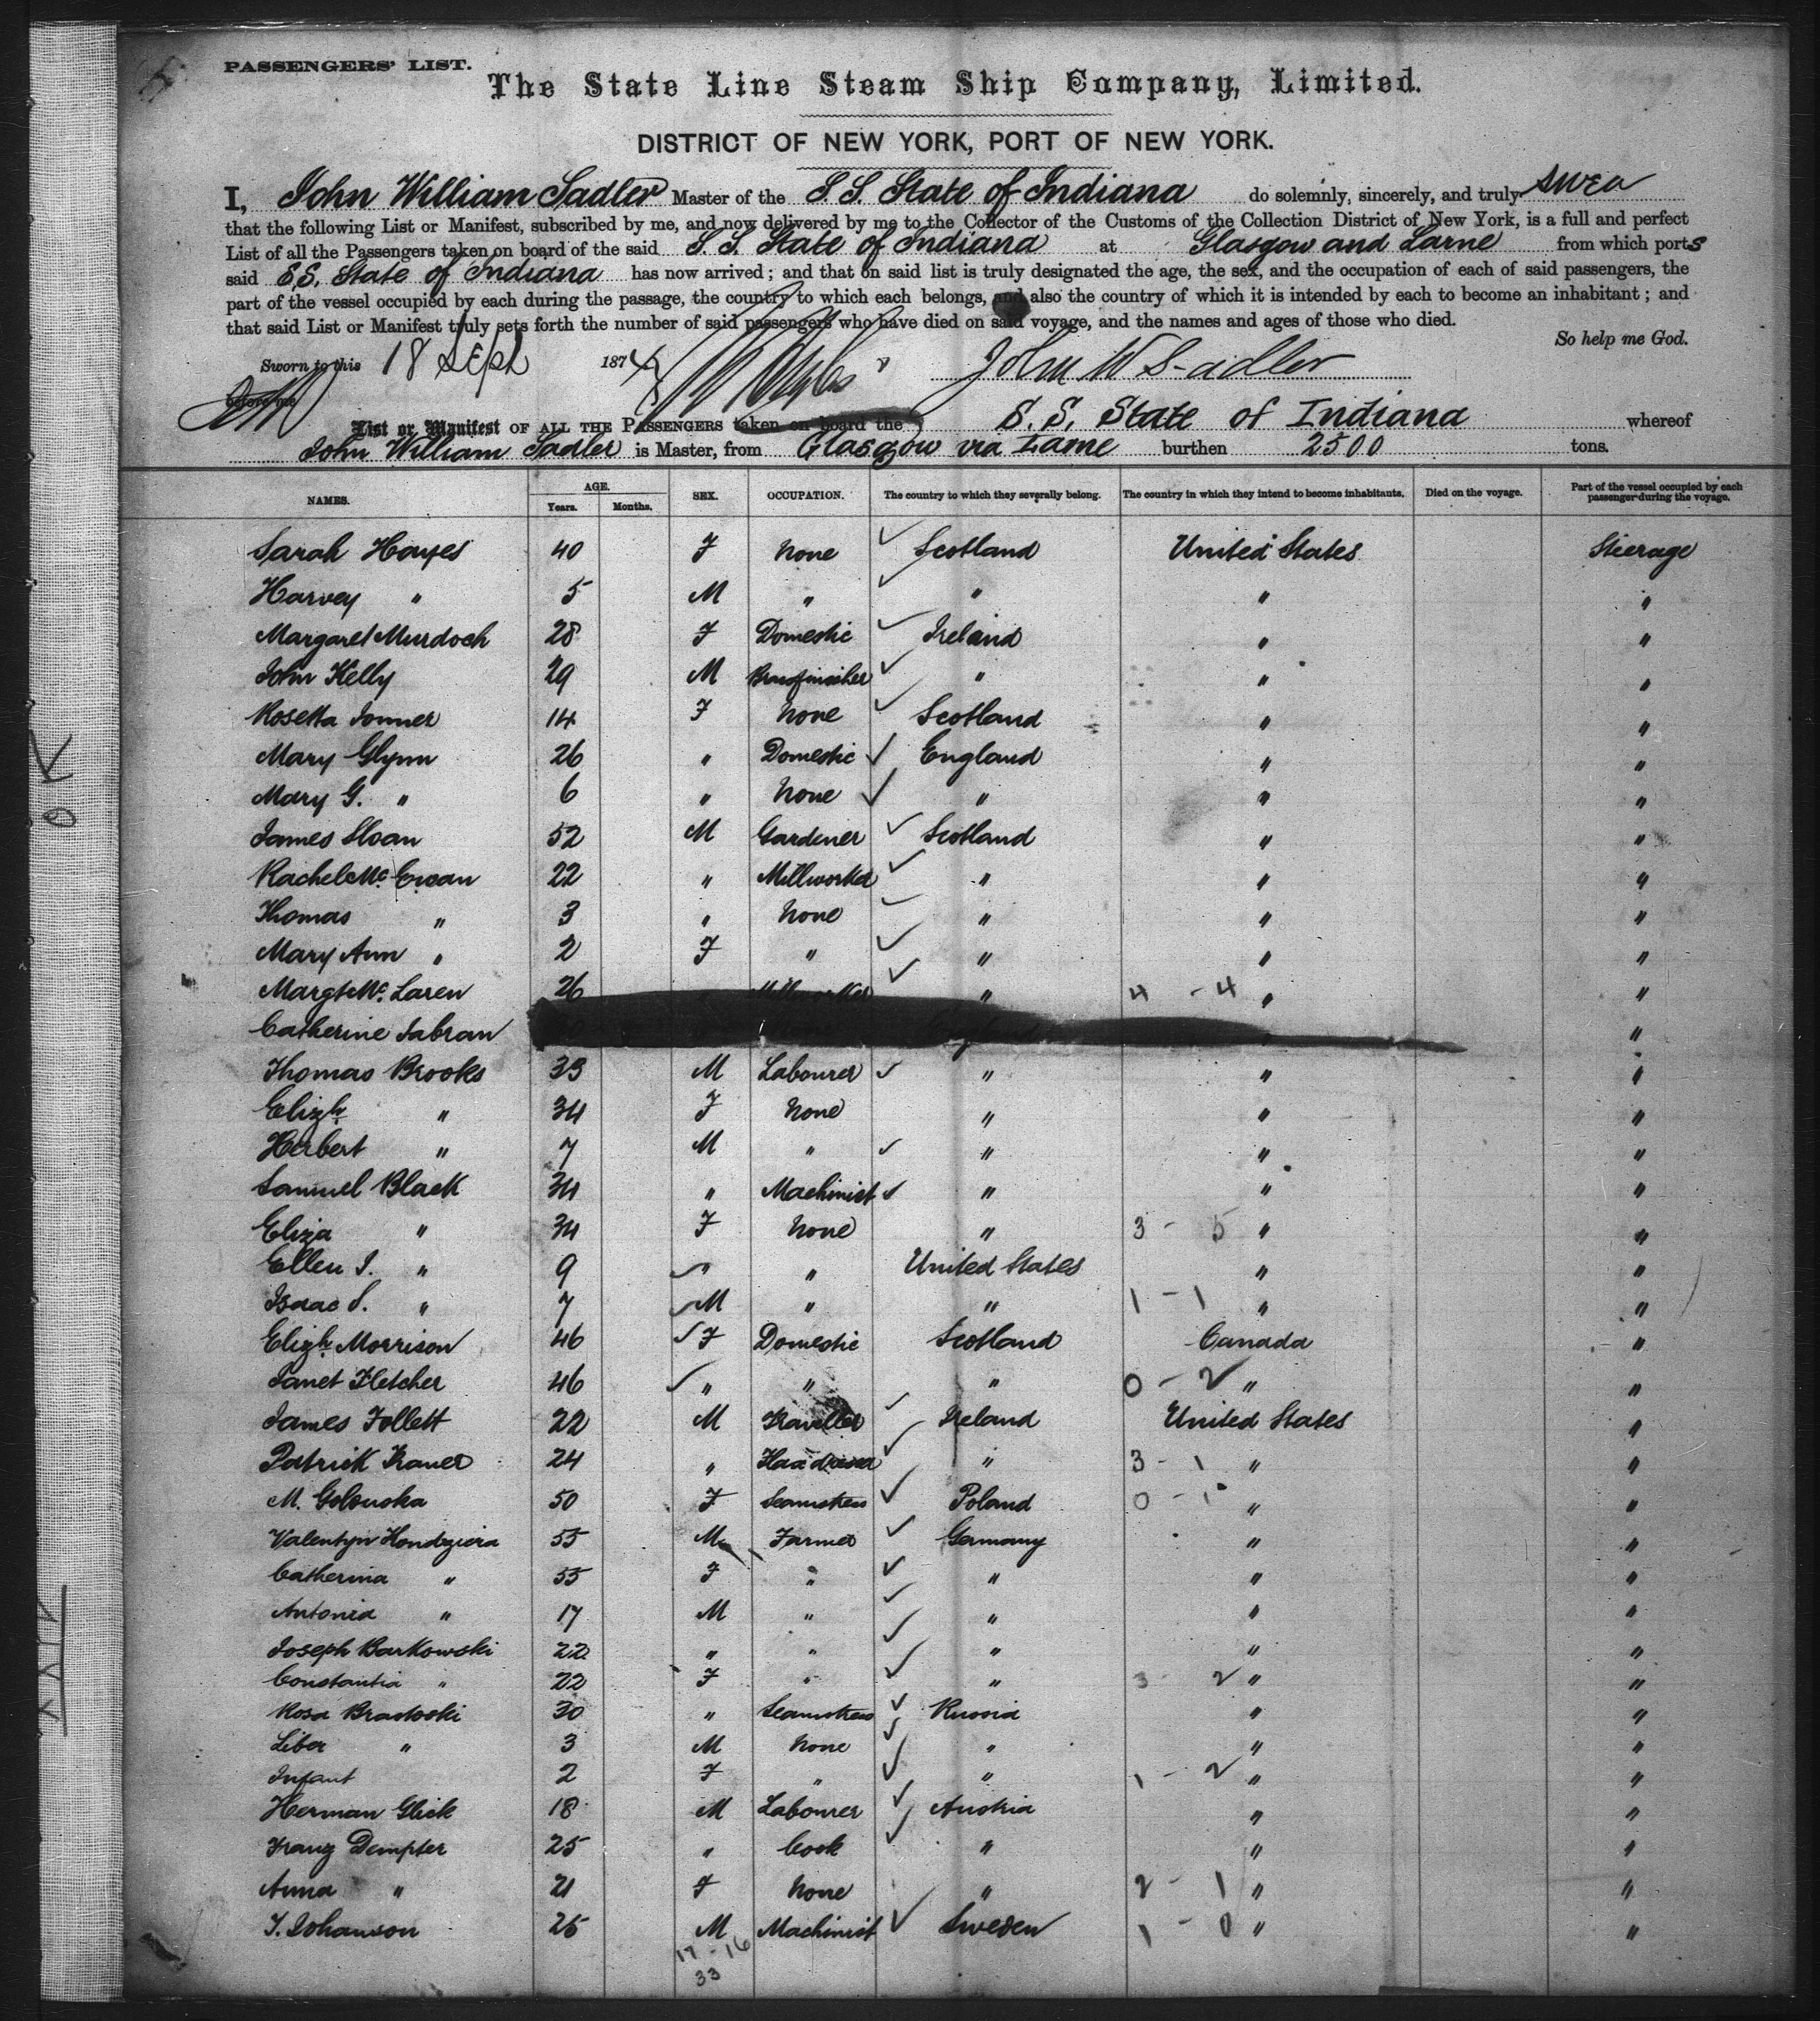 PASSENGERS' LIST.
The State Line Steam Ship Company, Limited.
DISTRICT OF NEW YORK, PORT OF NEW YORK.
I, John William Sadler Master of the S.S. State of Indiana do solemnly, sincerely, and truly swear
that the following List or Manifest, subscribed by me, and now delivered by me to the Collector of the Customs of the Collection District of New York, is a full and perfect
List of all the Passengers taken on board of the said S.S. State of Indiana at Glasgow and Larne from which ports
said S.S. State of Indiana has now arrived; and that on said list is truly designated the age, the sex, and the occupation of each of said passengers, the
part of the vessel occupied by each during the passage, the country to which each belongs, and also the country of which it is intended by each to become an inhabitant; and
that said List or Manifest truly sets forth the number of said passengers who have died on said voyage, and the names and ages of those who died.
So help me God.
Sworn to this 18 Sept 187 John W Sadler
before me
List or Manifest OF ALL THE PASSENGERS taken on board the S.S. State of Indiana whereof
John William Sadler is Master, from Glasgow via Larne burthen 2500 tons.
NAMES. AGE. Years. Months. SEX. OCCUPATION. The country to which they severally belong. The country in which they intend to become inhabitants. Died on the voyage. Part of the vessel occupied by each passenger during the voyage.
Sarah Hayes 40 F None Scotland United States Steerage
Harvey " 5 M " " " "
Margaret Murdoch 28 F Domestic Ireland " "
John Kelly 29 M Brassfinisher " " "
Rosetta Jonner 14 F None Scotland " "
Mary Glynn 26 " Domestic England " "
Mary G. " 6 " None " " "
James Sloan 52 M Gardener Scotland " "
Rachel McEwan 22 " Millworker " " "
Thomas " 3 " None " " "
Mary Ann " 2 F " " " "
Margt McLaren 26 " Millworker " 4 - 4 " "
Catherine Sabran "
Thomas Brooks 33 M Labourer " " "
Elizh " 34 F None " " "
Herbert " 7 M " " " "
Samuel Black 34 " Machinist " " "
Eliza " 34 F None " 3 - 5 " "
Ellen J. " 9 " " United States " "
Isaac S. " 7 M " " 1 - 1 " "
Elizh Morrison 46 F Domestic Scotland Canada "
Janet Fletcher 46 " " " 0 - 2 " "
James Follett 22 M Traveller Ireland United States "
Patrick 24 " " 3 - 1 " "
M. Golouska 50 F Seamstress Poland 0 - 1 " "
Valentyn Hondzyiera 55 M Farmer Germany " "
Catherina " 55 F " " " "
Antonia " 17 M " " " "
Joseph Barkowski 22 " " " " "
Constantia " 22 F " " 3 - 2 " "
Rosa Bradooski 30 " Seamstress Russia " "
Liber " 3 M None " " "
Infant 2 F " " 1 - 2 " "
Herman Glick 18 M Labourer Austria " "
Franz Dempter 25 " Cook " " "
Anna " 21 F None " 2 - 1 " "
J. Johanson 25 M Machinist Sweden 1 - 0 " "
17 - 16
33
OK